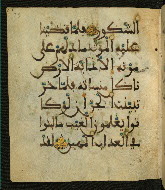 الشكور فلما قضينا
عليه الموت ما دلهم على
موته إلا دابة الأرض
تأكل منسأته فلما خر
تبينت الجن أن لو كا
نوا يعلمون الغيب ما لبثوا
في العذاب المهين لقد